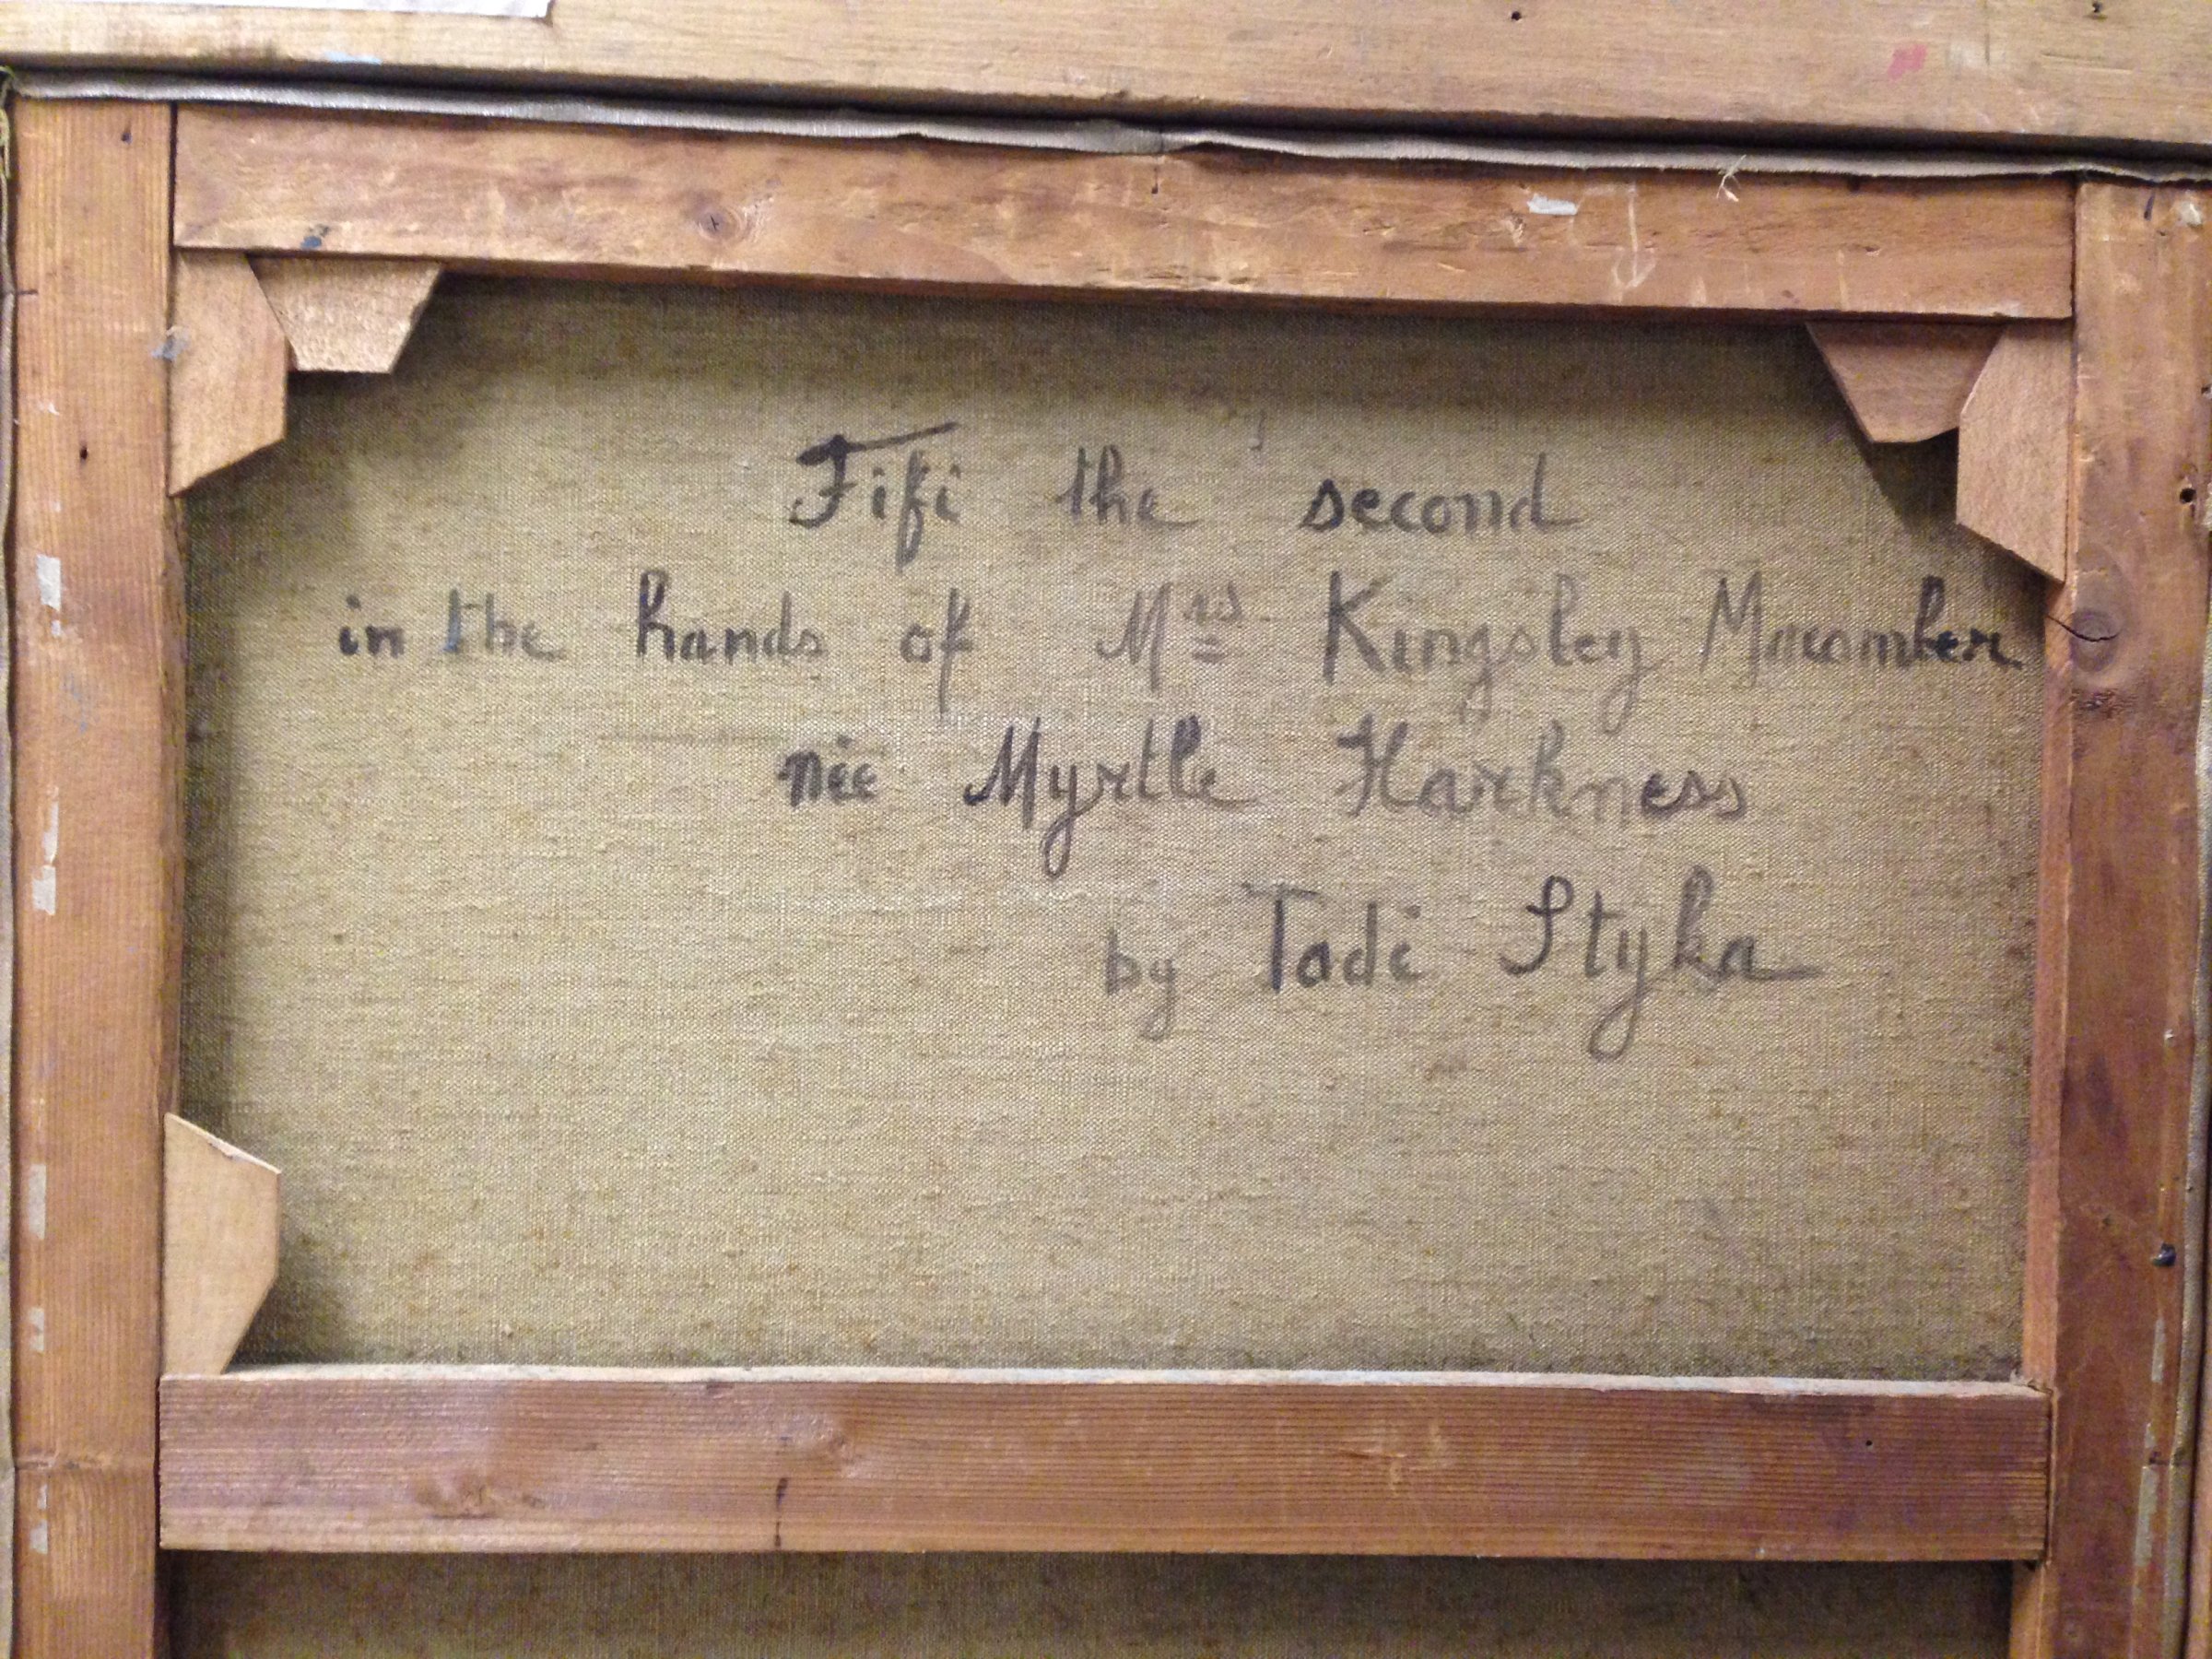 Fifi the second
in the hands of Mrs Kingsley Macomber
née Myrtle Harkness
by Tadé Styka